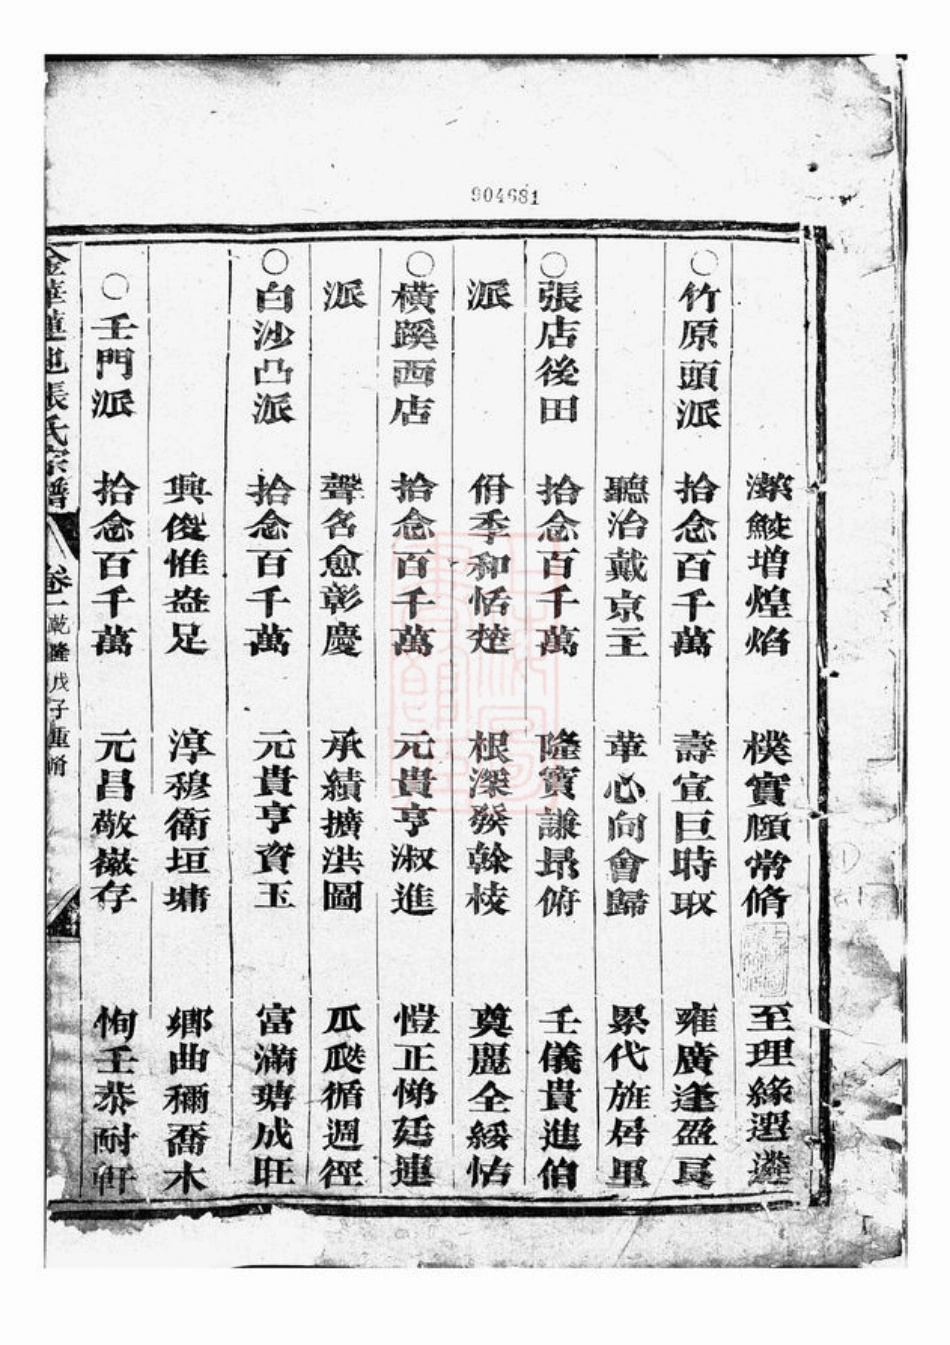 904681
增煌焰 樸實願常脩 至理緣選
○竹原頭派 拾念百千萬 壽宣巨時取 雍廣逢盈長
聽治戴京主 華心向會歸 累代旌居里
○張店後田 拾念百千萬 隆寶謙昴俯 壬儀貴進伯
派 佾季和恬楚 根深發榦枝 奠麗全綏怙
○橫蹊西店 拾念百千萬 元貴亨淑進 愷正悌廷連
派 聲名愈彰慶 承績擴洪圖 瓜瓞循週徑
○白沙凸派 拾念百千萬 元貴亨資玉 富滿瑭成旺
興俊惟益足 淳穆衛垣墉 鄉曲稱喬木
○壬門派 拾念百千萬 元昌敬嶽存 恂壬恭耐軒
金華蓮池張氏宗譜 卷一 乾隆戊子重脩